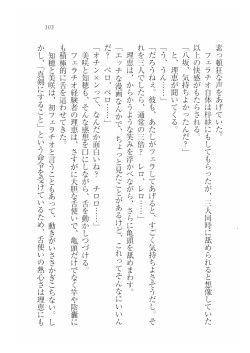 103
素っ頓狂な声をあげてしまった。
フェラチオ自体は梓緒にもしてもらったが、三人同時に舐められると想像していた
以上の快感がもたらされる。
「八坂、気持ちよかったんだ？」
と、理恵が聞いてくる。
「う、うん……」
「だろうねぇ。彼も、あたしがフェラしてあげると、すごく気持ちよさそうだし。そ
れを三人でしたら、通常の三倍？　レロ、レロ……」
理恵は、からかうような笑みを浮かべ、さらに亀頭を舐めまわす。
「エッチな漫画なんかで、ちょっと見たことがあるけど、これってそんなにいいん
だ？　ペロ、ペロ……」
「オチン×って、なんだか面白いね？　チロロ……」
美咲と知穂も、そんな感想を口にしながら、舌を動かしつづける。
フェラチオ経験者の理恵は、さすがに大胆な舌使いで、亀頭だけでなく竿や陰嚢に
も積極的に舌を這わせてきた。
知穂と美咲は、初フェラチオと言うこともあって、動きがいささかぎこちない。し
かし、「真剣にすること」という命令を受けているので、舌使いの熱心さは理恵にも